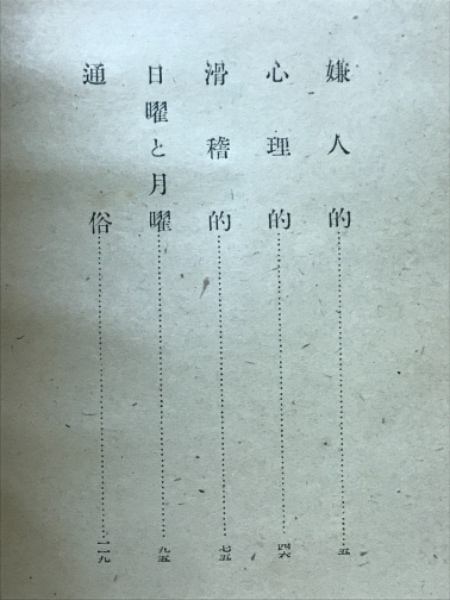 嫌人的……五
心理的……四六
滑稽的……七五
日曜と月曜……九五
通俗……一一九